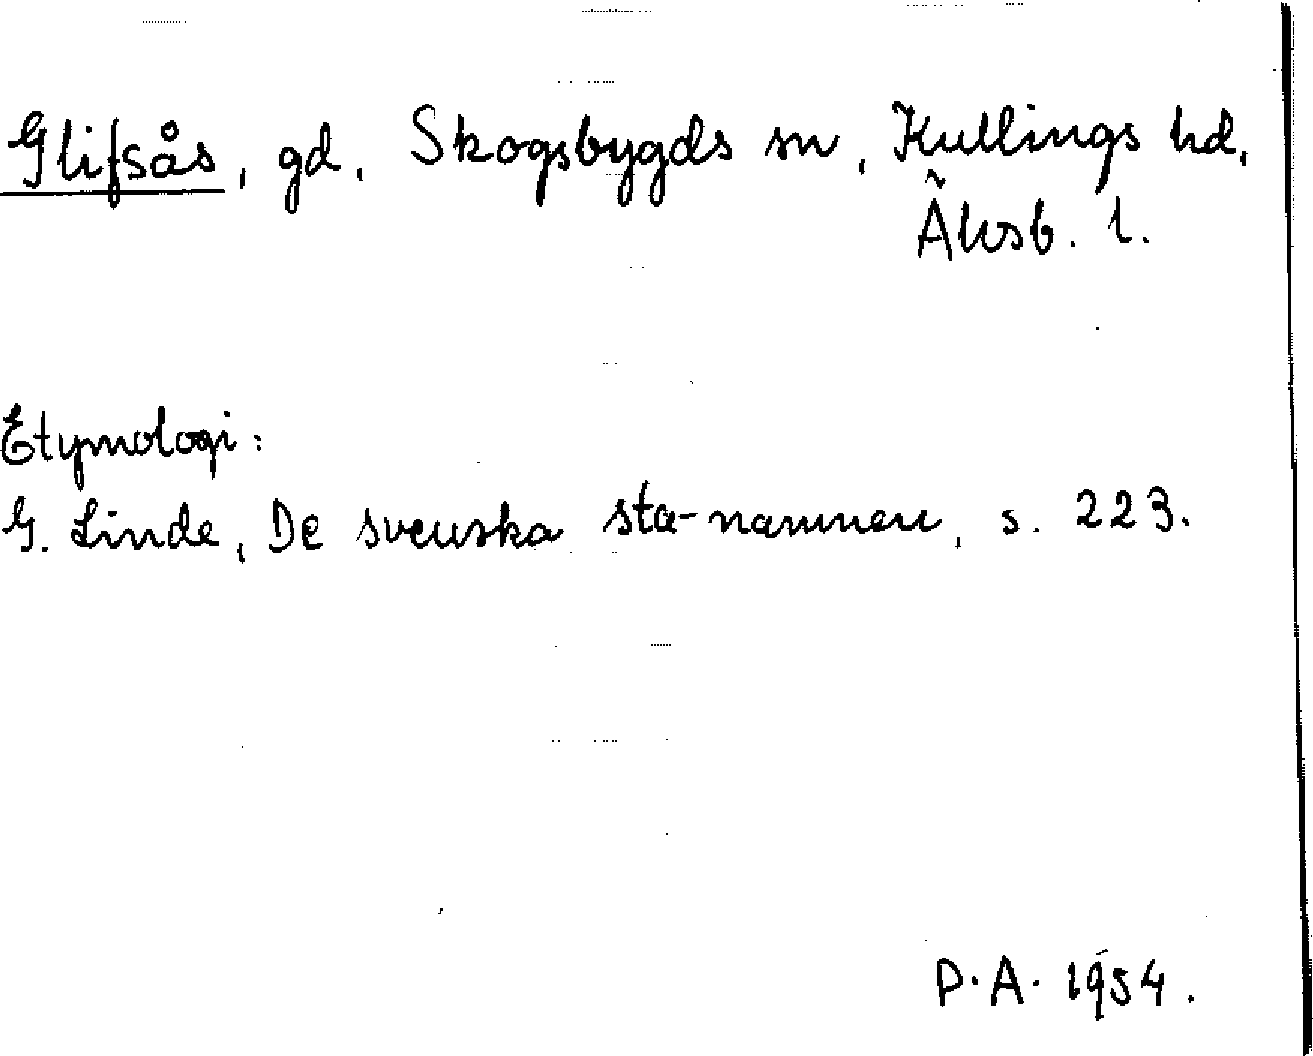 Glifsås, gd, Skogsbygds sn, Kullings hd,
Älvsb. l.
Etymologi:
G. Linde, De svenska sta-namnen, s. 223.
P.A. 1954.